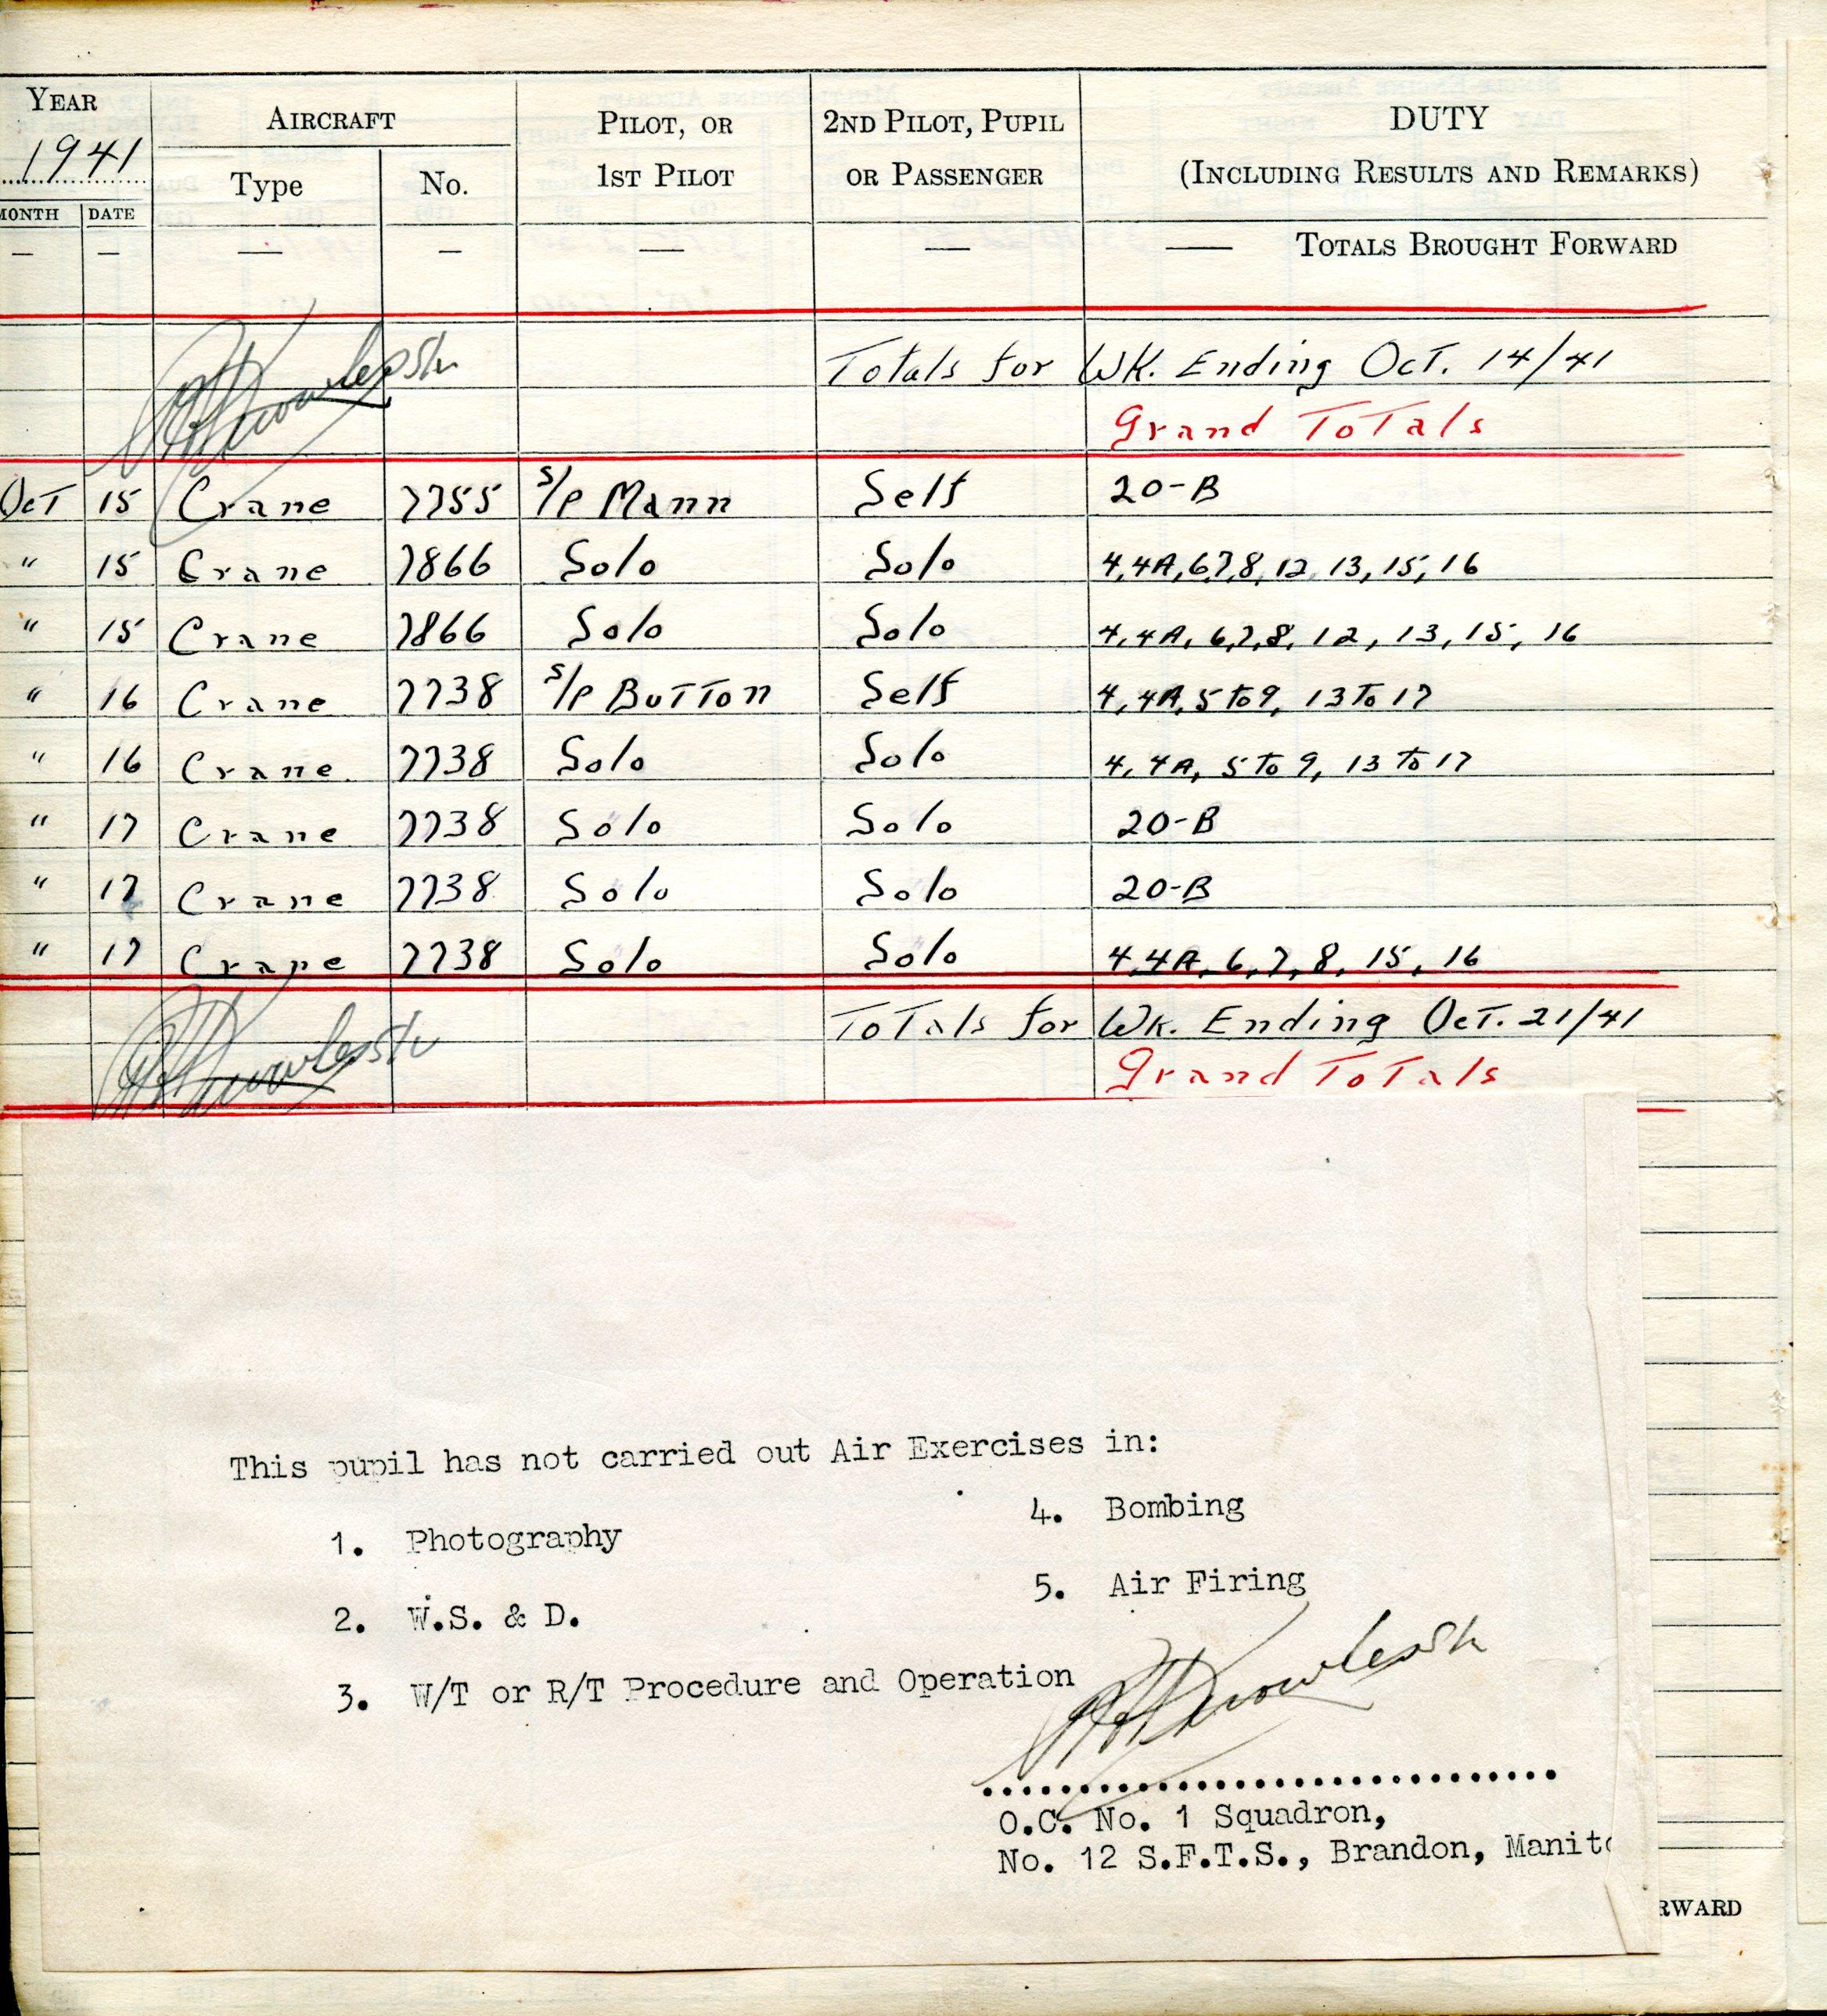 YEAR 1941 AIRCRAFT PILOT, OR 2ND PILOT, PUPIL DUTY
MONTH DATE Type No. 1ST PILOT OR PASSENGER (INCLUDING RESULTS AND REMARKS)
— — — — — — — TOTALS BROUGHT FORWARD
Totals for WK. Ending Oct. 14/41
Grand Totals
Oct 15 Crane 7755 S/P Mann Self 20-B
" 15 Crane 7866 Solo Solo 4,4A,6,7,8,12,13,15,16
" 15 Crane 7866 Solo Solo 4,4A,6,7,8,12,13,15,16
" 16 Crane 7738 S/P Button Self 4,4A,5 to 9, 13 to 17
" 16 Crane 7738 Solo Solo 4,4A, 5 to 9, 13 to 17
" 17 Crane 7738 Solo Solo 20-B
" 17 Crane 7738 Solo Solo 20-B
" 17 Crane 7738 Solo Solo 4,4A,6,7,8,15,16
Totals for Wk. Ending Oct. 21/41
Grand Totals
This pupil has not carried out Air Exercises in:
1. Photography
2. W.S. & D.
3. W/T or R/T Procedure and Operation
4. Bombing
5. Air Firing
O.C. No. 1 Squadron,
No. 12 S.F.T.S., Brandon, Manito
RWARD